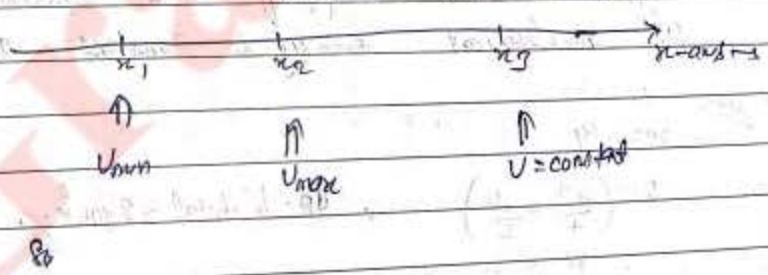 x₁ x₂ x₃ x-axis
Umin Umax U = constant
So